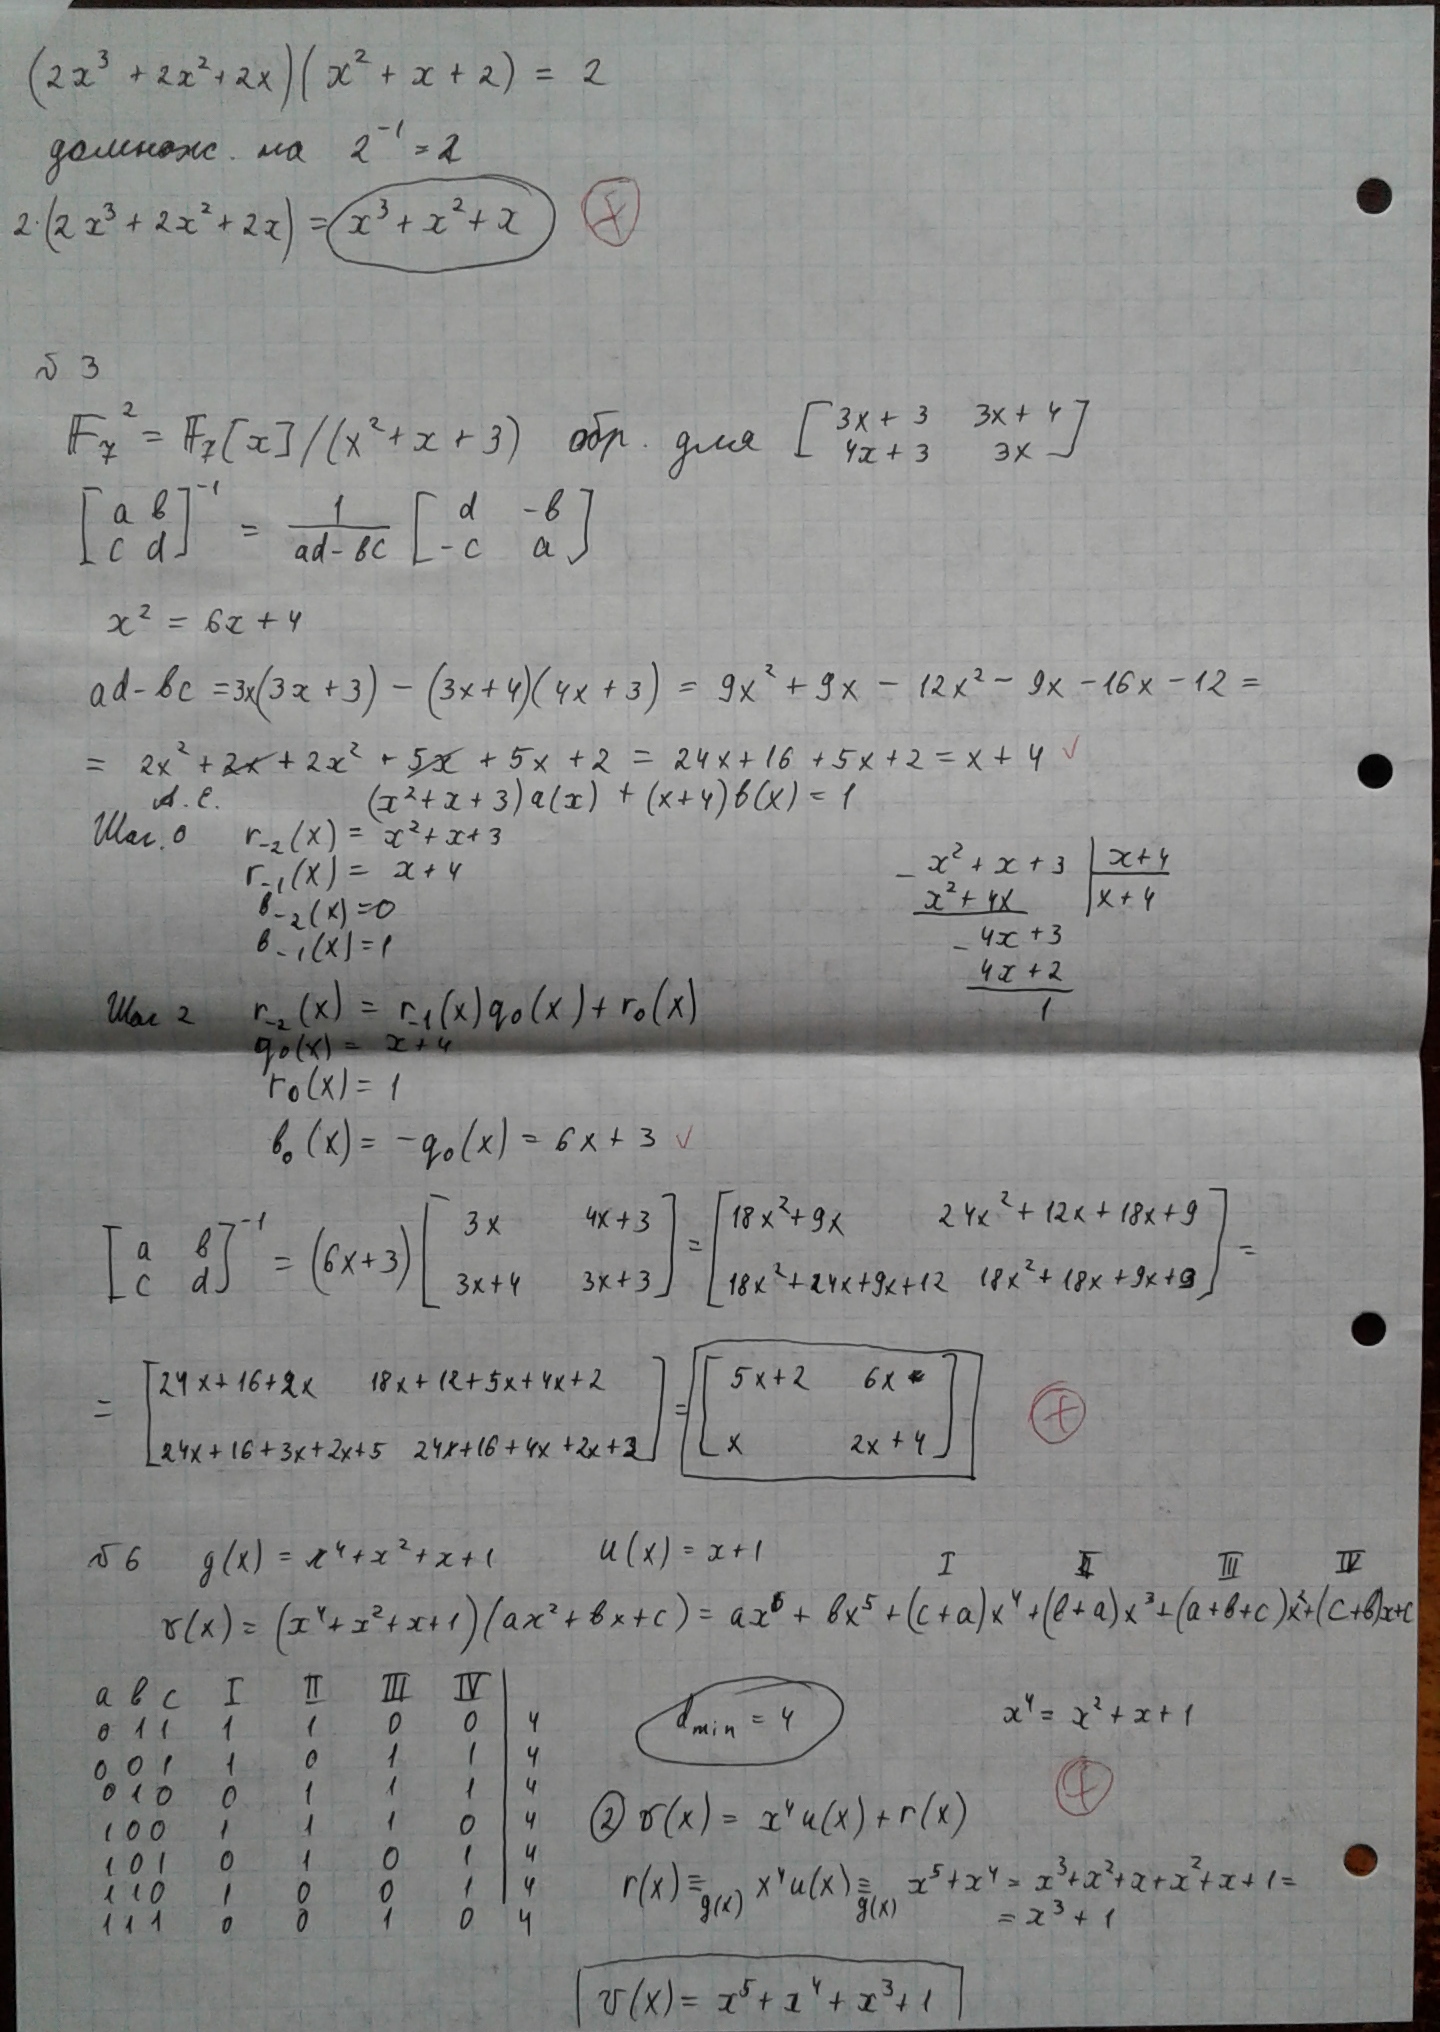 (2x³ + 2x² + 2x)(x² + x + 2) = 2
домнож. на 2⁻¹ = 2
2·(2x³ + 2x² + 2x) = x³ + x² + x
№ 3
F₇² = F₇[x]/(x² + x + 3) обр. для [3x + 3 3x + 4
4x + 3 3x]
[a b
c d]⁻¹ = 1/(ad - bc) [d -b
-c a]
x² = 6x + 4
ad - bc = 3x(3x + 3) - (3x + 4)(4x + 3) = 9x² + 9x - 12x² - 9x - 16x - 12 =
= 2x² + 2x + 2x² + 5x + 5x + 2 = 24x + 16 + 5x + 2 = x + 4 ✓
А. Е. (x² + x + 3) a(x) + (x + 4) b(x) = 1
Шаг. 0 r₋₂(x) = x² + x + 3
r₋₁(x) = x + 4
b₋₂(x) = 0
b₋₁(x) = 1
x² + x + 3 | x + 4
x² + 4x | x + 4
4x + 3
4x + 2
1
Шаг 2 r₋₂(x) = r₋₁(x) q₀(x) + r₀(x)
q₀(x) = x + 4
r₀(x) = 1
b₀(x) = -q₀(x) = 6x + 3 ✓
[a b
c d]⁻¹ = (6x + 3) [3x 4x + 3
3x + 4 3x + 3] = [18x² + 9x 24x² + 12x + 18x + 9
18x² + 24x + 9x + 12 18x² + 18x + 9x + 9] =
= [24x + 16 + 2x 18x + 12 + 5x + 4x + 2
24x + 16 + 3x + 2x + 5 24x + 16 + 4x + 2x + 2] = [5x + 2 6x
x 2x + 4] +
№ 6 g(x) = x⁴ + x² + x + 1 u(x) = x + 1
I II III IV
v(x) = (x⁴ + x² + x + 1)(ax² + bx + c) = ax⁶ + bx⁵ + (c + a)x⁴ + (b + a)x³ + (a + b + c)x² + (c + b)x + c
a b c I II III IV
0 1 1 1 1 0 0 4
0 0 1 1 0 1 1 4
0 1 0 0 1 1 1 4
1 0 0 1 1 1 0 4
1 0 1 0 1 0 1 4
1 1 0 1 0 0 1 4
1 1 1 0 0 1 0 4
d min = 4
x⁴ = x² + x + 1
+
② v(x) = x⁴u(x) + r(x)
r(x) ≡ g(x) x⁴u(x) ≡ g(x) x⁵ + x⁴ = x³ + x² + x + x² + x + 1 =
= x³ + 1
v(x) = x⁵ + x⁴ + x³ + 1